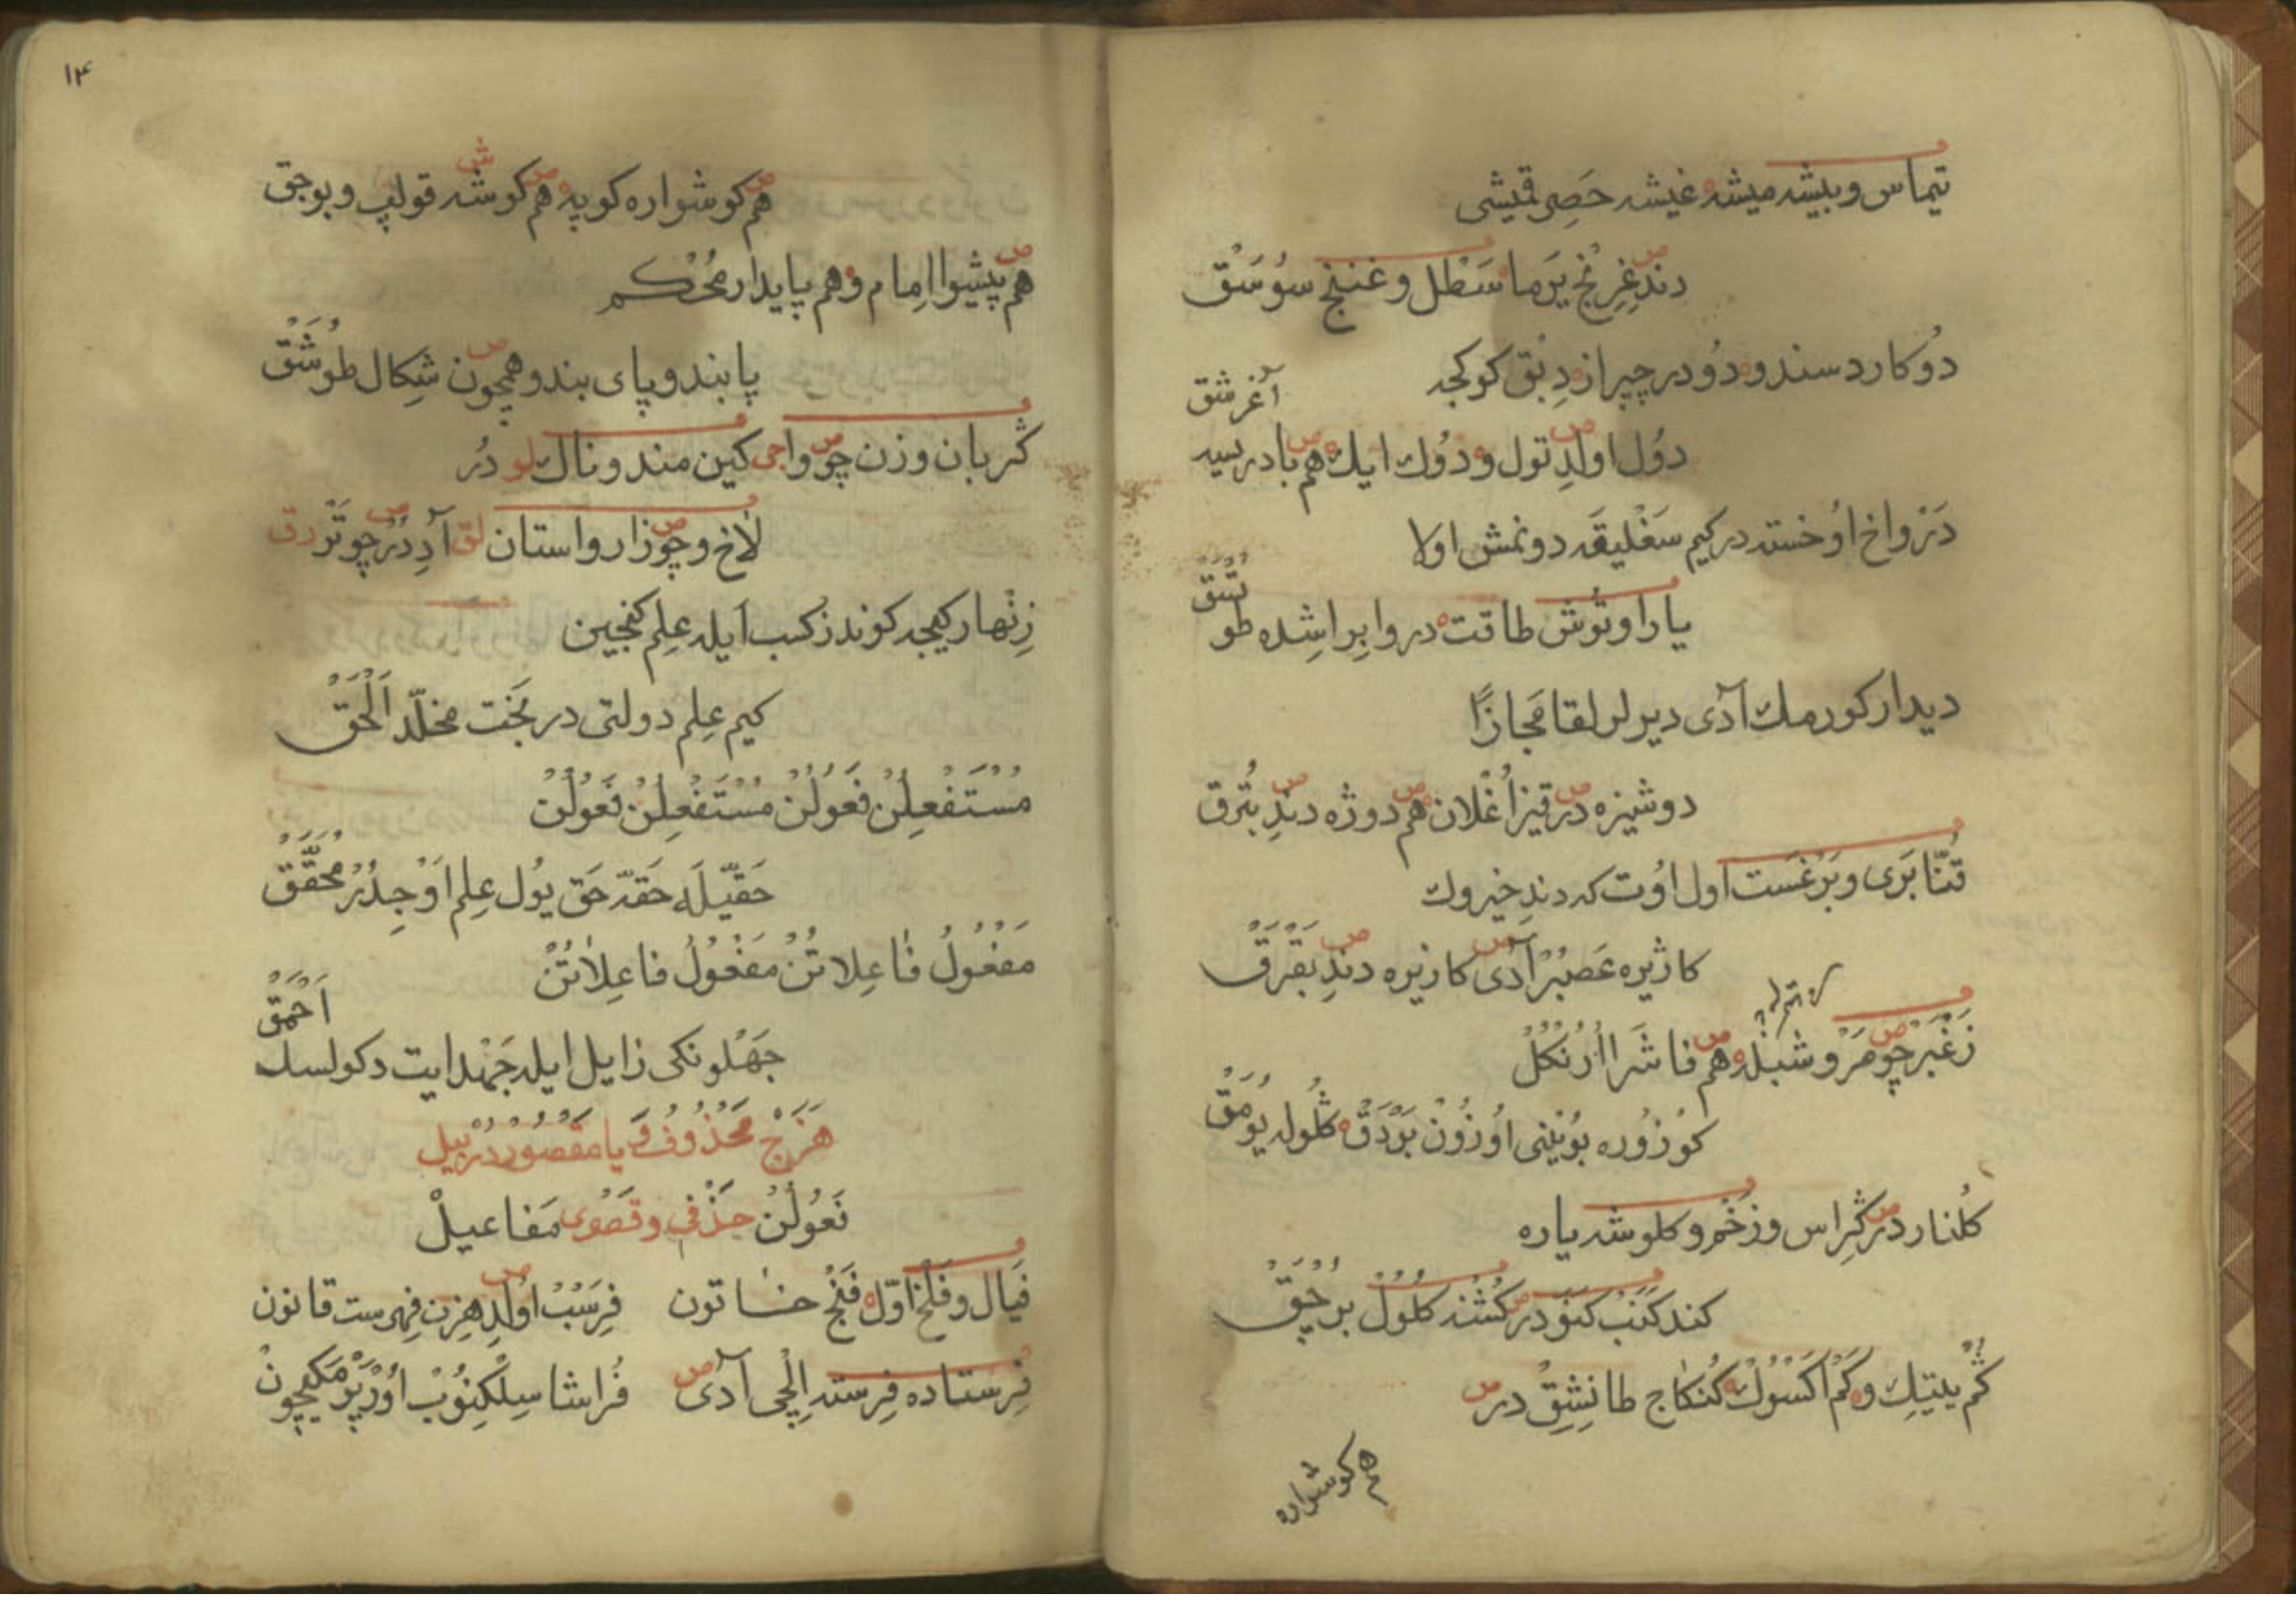 تیماس و بیشه میشه غیشه حصر قمیشی
دند غرنج یرما سطل و غنج سوسق
دو کارد سندو دو در چبر از دبق کوکجه
آغرشق
دول اولد تول و دوك ایك هم بادریسه
درواخ اوخسته در کیم سغلیقه دونمش اولا
یارا و توش طاقت در وابر اشده طو
تشق
دیدار کورمك آدی دیرلر لقا مجازا
دوشیزه در قیز اغلان هم دوژه دند بثرق
قنا بری و برغست اول اوت که دند خیروك
کاژیره عصبر آدی کازیره دند بقرق
زغبر چو مرو شبله هم فاشرا ارنکل
کوزوره بوینی اوزون بردق کلوله یومق
کلنار در کراس و زخم و کلوشه یاره
کند کنب کنو در کشند کلول برچق
کم یتیك و کم اکسوك کنکاج طانشق در
هم کوشواره
١٤
هم کوشواره کوپه هم کوشه قولپ و بوجق
هم پیشوا امام و هم پایدار محکم
پابند و پای بند و همچون شکال طوشق
کر بان و زن چو واجی کین مند و ناك لو در
لاخ و چو زار و استان لق آدیدر چو تر رق
زنهار کیجه کوندز کسب ایله علم کنجین
کیم علم دولتی در بخت مخلد الحق
مستفعلن فعولن مستفعلن فعولن
حقیله حقه حق یول علم اوجدر محقق
مفعول فاعلاتن مفعول فاعلاتن
احمق
جهلونکی زایل ایله جهد ایت دکولسك
هزج محذوف یا مقصوردر بیل
فعولن حذفی و قصوی مفاعیل
فیال و فلخ اول فنج خاتون فرسب اولد هزن فهرست قانون
فرستاده فرسته الچی آدی فراشا سلکنوب اورپرمکیچون